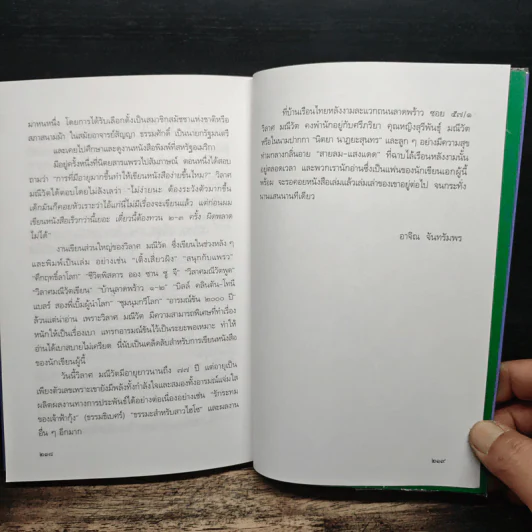 มาหนหนึ่ง โดยการได้รับเลือกตั้งเป็นสมาชิกสมัชชาแห่งชาติหรือ
สภาสนามม้า ในสมัยอาจารย์สัญญา ธรรมศักดิ์ เป็นนายกรัฐมนตรี
และเคยไปศึกษาและดูงานหนังสือพิมพ์ที่สหรัฐอเมริกา
มีอยู่ครั้งหนึ่งที่นิตยสารแพรวไปสัมภาษณ์ ตอนหนึ่งได้ตอบ
ถามว่า “การที่มีอายุมากขึ้นทำให้เขียนหนังสือง่ายขึ้นไหม?” วิลาศ
มณีวัตได้ตอบโดยไม่ลังเลว่า “ไม่ง่ายนะ ต้องระวังตัวมากขึ้น
เด็กมันก็คอยหัวเราะว่าไอ้แก่นี่ไม่มีเรื่องจะเขียนแล้ว แต่ก่อนผม
เขียนหนังสือเร็วกว่านี้เยอะ เดี๋ยวนี้ต้องทวน ๒-๓ ครั้ง ผิดพลาด
ไม่ได้”
งานเขียนส่วนใหญ่ของวิลาศ มณีวัต ซึ่งเขียนในช่วงหลัง ๆ
และพิมพ์เป็นเล่ม อย่างเช่น “เต็งเสี่ยวผิง” “สนุกกับแพรว”
“ตึกฤทธิ์ลาโลก” “ชีวิตพิสดาร ออง ซาน ซู จี” “วิลาศมณีวัตพูด”
“วิลาศมณีวัตเขียน” “บ้านลาดพร้าว ๑-๒” “บิลล์ คลินตัน-โทนี่
แบลร์ สองพี่เบิ้มผู้นำโลก” “ชุมนุมกวีโลก” “อารมณ์ขัน ๒๐๐๐ ปี”
ล้วนแต่น่าอ่าน เพราะวิลาศ มณีวัต มีความสามารถพิเศษที่ทำเรื่อง
หนักให้เป็นเรื่องเบา แทรกอารมณ์ขันไว้เป็นระยะพอเหมาะ ทำให้
อ่านได้เบาสบายไม่เครียด นี่นับเป็นเคล็ดลับสำหรับการเขียนหนังสือ
ของนักเขียนผู้นี้
วันนี้วิลาศ มณีวัตมีอายุยาวนานถึง ๗๗ ปี แต่อายุเป็น
เพียงตัวเลขเพราะเขายังมีพลังทั้งกำลังใจและสมองทั้งอารมณ์แจ่มใส
ผลิตผลงานทางการประพันธ์ได้อย่างต่อเนื่องอย่างเช่น “รักระทม
ของเจ้าฟ้ากุ้ง” (ธรรมธิเบศร์) “ธรรมะสำหรับสาวไฮโซ” และผลงาน
อื่น ๆ อีกมาก
๒๑๘
ที่บ้านเรือนไทยหลังงามละแวกถนนลาดพร้าว ซอย ๕๗/๑
วิลาศ มณีวัต คงพำนักอยู่กับศรีภริยา คุณหญิงสุรีพันธุ์ มณีวัต
หรือในนามปากกา “นิตยา นาฏยะสุนทร” และลูก ๆ อย่างมีความสุข
ท่ามกลางกลิ่นอาย “สายลม-แสงแดด” ที่ฉาบไล้เรือนหลังงามนั้น
อยู่ตลอดเวลา และพวกเรานักอ่านซึ่งเป็นแฟนของนักเขียนเอกผู้นี้
พร้อม จะรอคอยหนังสือเล่มแล้วเล่มเล่าของเขาอยู่ต่อไป จนกระทั่ง
นานแสนนานทีเดียว
อาจิณ จันทรัมพร
๒๑๙